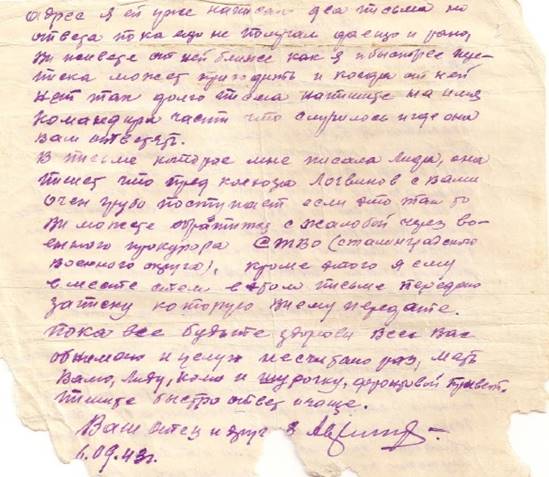 адрес я ей уже написал два письма но
ответа пока еще не получал да еще и рано,
Ви живете от ней ближе как я и быстрее
может приходить и когда от ней
нет так долго писма напишите на имя
командира части что случилось и где она
Вам ответят.
В письме которое мне писала Лида, она
пишет что пред колхоза Логвинов с Вами
очен грубо поступает если это так то
Ви можете обратится с жалобой через во-
енного прокурора СТВО (сталинградского
Военного округа), кроме этого я ему
вместе с этом письме передаю
записку которую Ви ему передайте.
пока все будьте здорови Всех Вас
обнимаю и целую несчитано раз, мать
Валю, Лиду, Колю и Шурочку, фронтовой Привет.
пишите быстро ответ и чаще.
Ваш отец и друг
6.09.43г.